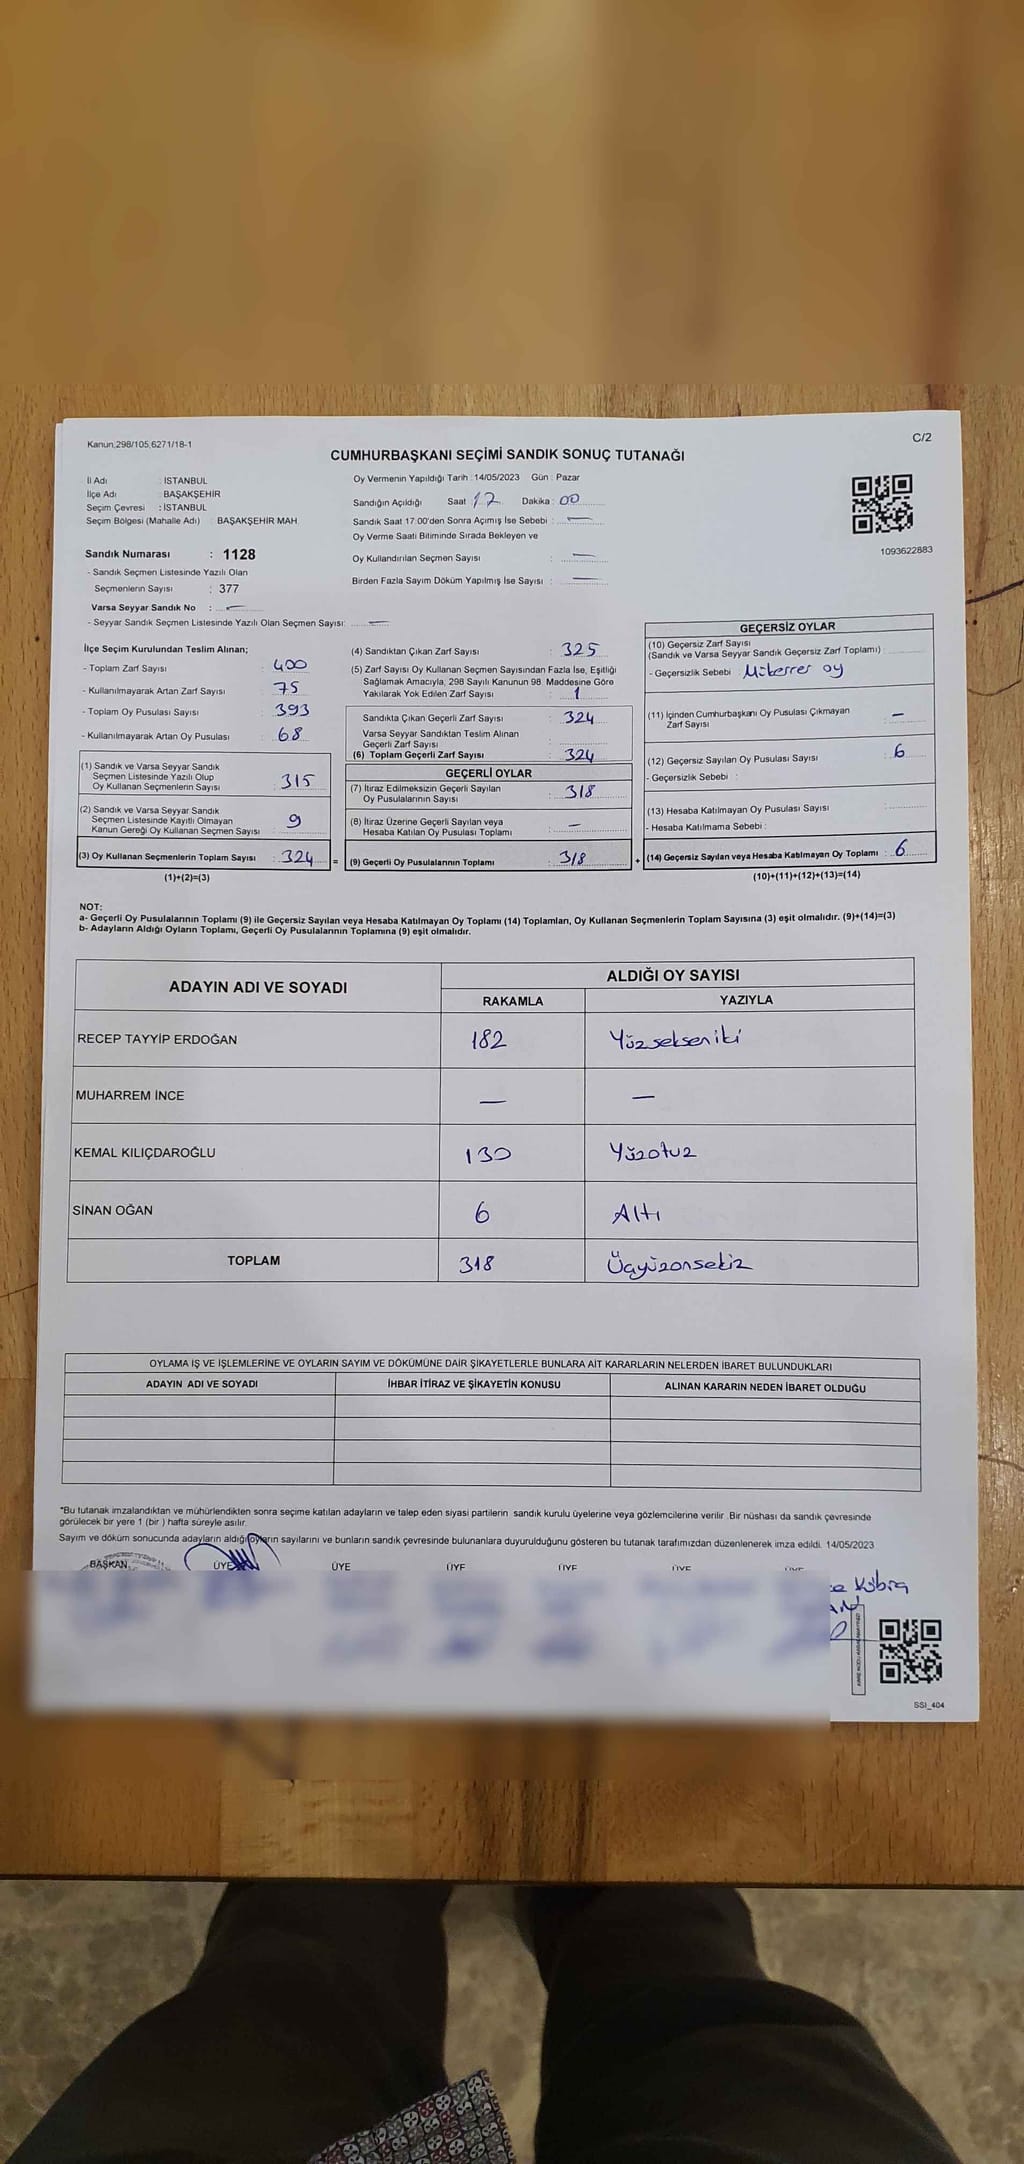 Kanun,298/105,6271/18-1
C/2
CUMHURBAŞKANI SEÇİMİ SANDIK SONUÇ TUTANAĞI
İl Adı : İSTANBUL
İlçe Adı : BAŞAKŞEHİR
Seçim Çevresi : İSTANBUL
Seçim Bölgesi (Mahalle Adı) : BAŞAKŞEHİR MAH
Sandık Numarası : 1128
- Sandık Seçmen Listesinde Yazılı Olan
Seçmenlerin Sayısı : 377
Varsa Seyyar Sandık No : —
- Seyyar Sandık Seçmen Listesinde Yazılı Olan Seçmen Sayısı: —
Oy Vermenin Yapıldığı Tarih : 14/05/2023 Gün : Pazar
Sandığın Açıldığı Saat 17 Dakika : 00
Sandık Saat 17:00'den Sonra Açımış İse Sebebi : —
Oy Verme Saati Bitiminde Sırada Bekleyen ve
Oy Kullandırılan Seçmen Sayısı : —
Birden Fazla Sayım Döküm Yapılmış İse Sayısı : —
1093622883
İlçe Seçim Kurulundan Teslim Alınan;
- Toplam Zarf Sayısı : 400
- Kullanılmayarak Artan Zarf Sayısı : 75
- Toplam Oy Pusulası Sayısı : 393
- Kullanılmayarak Artan Oy Pusulası : 68
(1) Sandık ve Varsa Seyyar Sandık
Seçmen Listesinde Yazılı Olup
Oy Kullanan Seçmenlerin Sayısı : 315
(2) Sandık ve Varsa Seyyar Sandık
Seçmen Listesinde Kayıtlı Olmayan
Kanun Gereği Oy Kullanan Seçmen Sayısı : 9
(3) Oy Kullanan Seçmenlerin Toplam Sayısı : 324
(1)+(2)=(3)
(4) Sandıktan Çıkan Zarf Sayısı : 325
(5) Zarf Sayısı Oy Kullanan Seçmen Sayısından Fazla İse, Eşitliği
Sağlamak Amacıyla, 298 Sayılı Kanunun 98. Maddesine Göre
Yakılarak Yok Edilen Zarf Sayısı : 1
Sandıkta Çıkan Geçerli Zarf Sayısı : 324
Varsa Seyyar Sandıktan Teslim Alınan
Geçerli Zarf Sayısı :
(6) Toplam Geçerli Zarf Sayısı : 324
GEÇERLİ OYLAR
(7) İtiraz Edilmeksizin Geçerli Sayılan
Oy Pusulalarının Sayısı : 318
(8) İtiraz Üzerine Geçerli Sayılan veya
Hesaba Katılan Oy Pusulası Toplamı : —
= (9) Geçerli Oy Pusulalarının Toplamı : 318
GEÇERSİZ OYLAR
(10) Geçersiz Zarf Sayısı
(Sandık ve Varsa Seyyar Sandık Geçersiz Zarf Toplamı) :
- Geçersizlik Sebebi : Mükerrer oy
(11) İçinden Cumhurbaşkanı Oy Pusulası Çıkmayan
Zarf Sayısı : —
(12) Geçersiz Sayılan Oy Pusulası Sayısı : 6
- Geçersizlik Sebebi :
(13) Hesaba Katılmayan Oy Pusulası Sayısı :
- Hesaba Katılmama Sebebi :
+ (14) Geçersiz Sayılan veya Hesaba Katılmayan Oy Toplamı : 6
(10)+(11)+(12)+(13)=(14)
NOT:
a- Geçerli Oy Pusulalarının Toplamı (9) ile Geçersiz Sayılan veya Hesaba Katılmayan Oy Toplamı (14) Toplamları, Oy Kullanan Seçmenlerin Toplam Sayısına (3) eşit olmalıdır. (9)+(14)=(3)
b- Adayların Aldığı Oyların Toplamı, Geçerli Oy Pusulalarının Toplamına (9) eşit olmalıdır.
ADAYIN ADI VE SOYADI
ALDIĞI OY SAYISI
RAKAMLA YAZIYLA
RECEP TAYYİP ERDOĞAN 182 Yüzsekseniki
MUHARREM İNCE — —
KEMAL KILIÇDAROĞLU 130 Yüzotuz
SİNAN OĞAN 6 Altı
TOPLAM 318 Üçyüzonsekiz
OYLAMA İŞ VE İŞLEMLERİNE VE OYLARIN SAYIM VE DÖKÜMÜNE DAİR ŞİKAYETLERLE BUNLARA AİT KARARLARIN NELERDEN İBARET BULUNDUKLARI
ADAYIN ADI VE SOYADI İHBAR İTİRAZ VE ŞİKAYETİN KONUSU ALINAN KARARIN NEDEN İBARET OLDUĞU
*Bu tutanak imzalandıktan ve mühürlendikten sonra seçime katılan adayların ve talep eden siyasi partilerin sandık kurulu üyelerine veya gözlemcilerine verilir. Bir nüshası da sandık çevresinde
görülecek bir yere 1 (bir ) hafta süreyle asılır.
Sayım ve döküm sonucunda adayların aldığı oyların sayılarını ve bunların sandık çevresinde bulunanlara duyurulduğunu gösteren bu tutanak tarafımızdan düzenlenerek imza edildi. 14/05/2023
BAŞKAN ÜYE ÜYE ÜYE ÜYE ÜYE ÜYE
Kübra
SSI_404